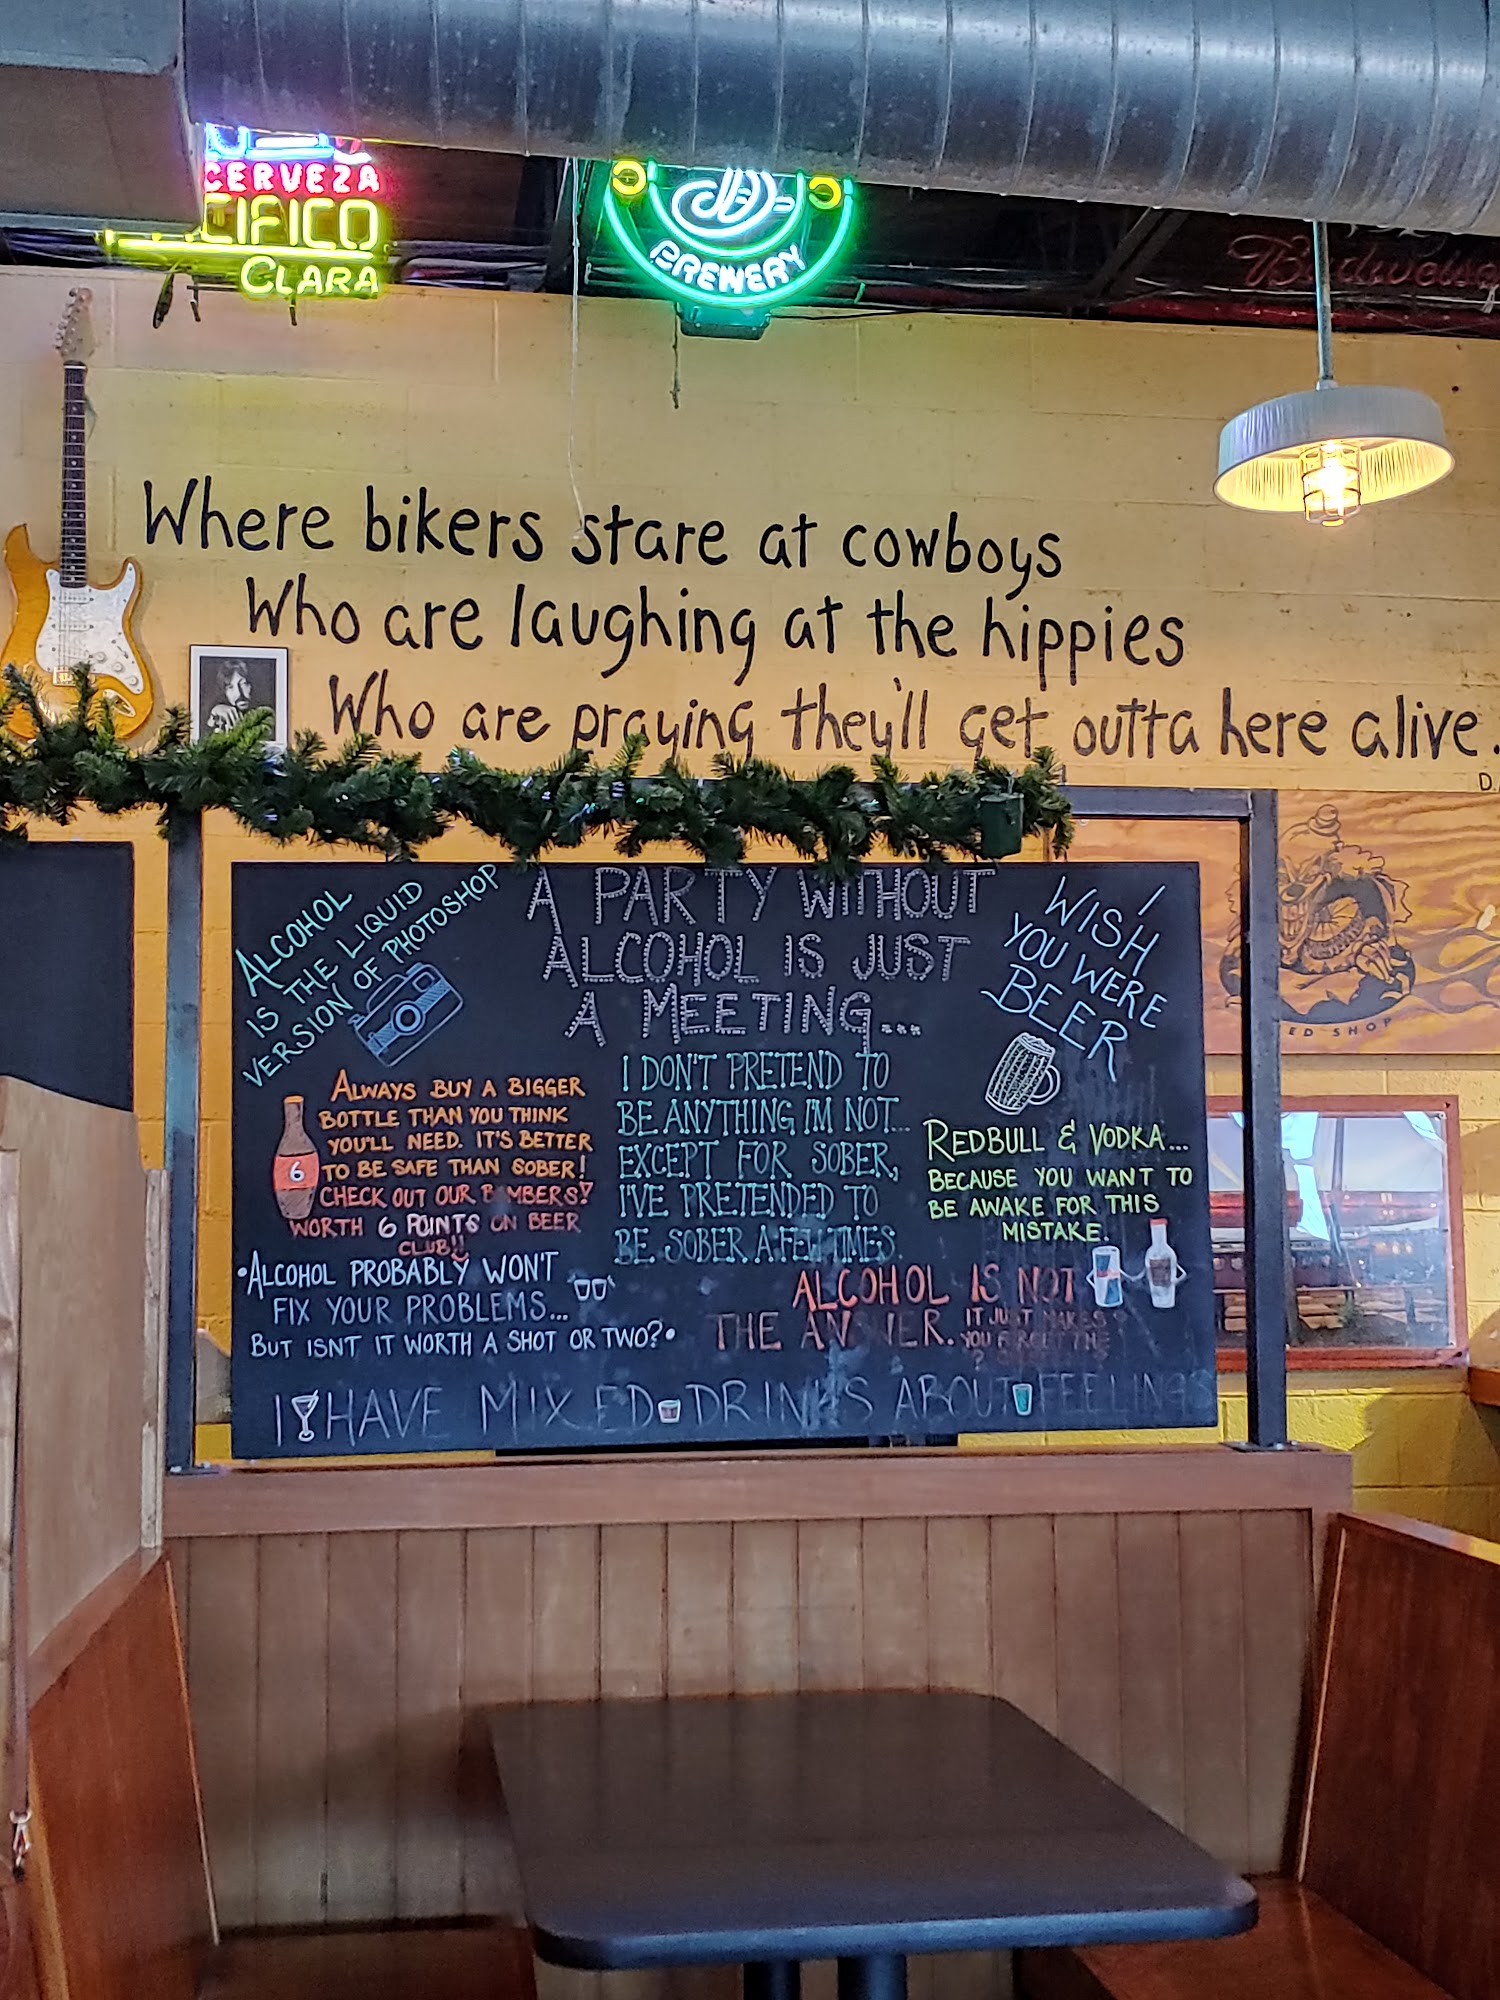 CERVEZA
CIFICO
CLARA
BREWERY
Budweiser
Where bikers stare at cowboys
Who are laughing at the hippies
Who are praying they'll get outta here alive.
D.
ALCOHOL
IS THE LIQUID
VERSION OF PHOTOSHOP
A PARTY WITHOUT
ALCOHOL IS JUST
A MEETING...
I
WISH
YOU WERE
BEER
ALWAYS BUY A BIGGER
BOTTLE THAN YOU THINK
YOU'LL NEED. IT'S BETTER
TO BE SAFE THAN SOBER!
CHECK OUT OUR B MBERS!
WORTH 6 POINTS ON BEER
CLUB!!
6
I DON'T PRETEND TO
BE ANYTHING I'M NOT...
EXCEPT FOR SOBER,
I'VE PRETENDED TO
BE SOBER A FEW TIMES.
REDBULL & VODKA...
BECAUSE YOU WANT TO
BE AWAKE FOR THIS
MISTAKE.
•ALCOHOL PROBABLY WON'T
FIX YOUR PROBLEMS...
BUT ISN'T IT WORTH A SHOT OR TWO?•
ALCOHOL IS NOT
THE AN WER. IT JUST MAKES
YOU FORGET THE
I HAVE MIXED DRINKS ABOUT FEELINGS
ED SHOP